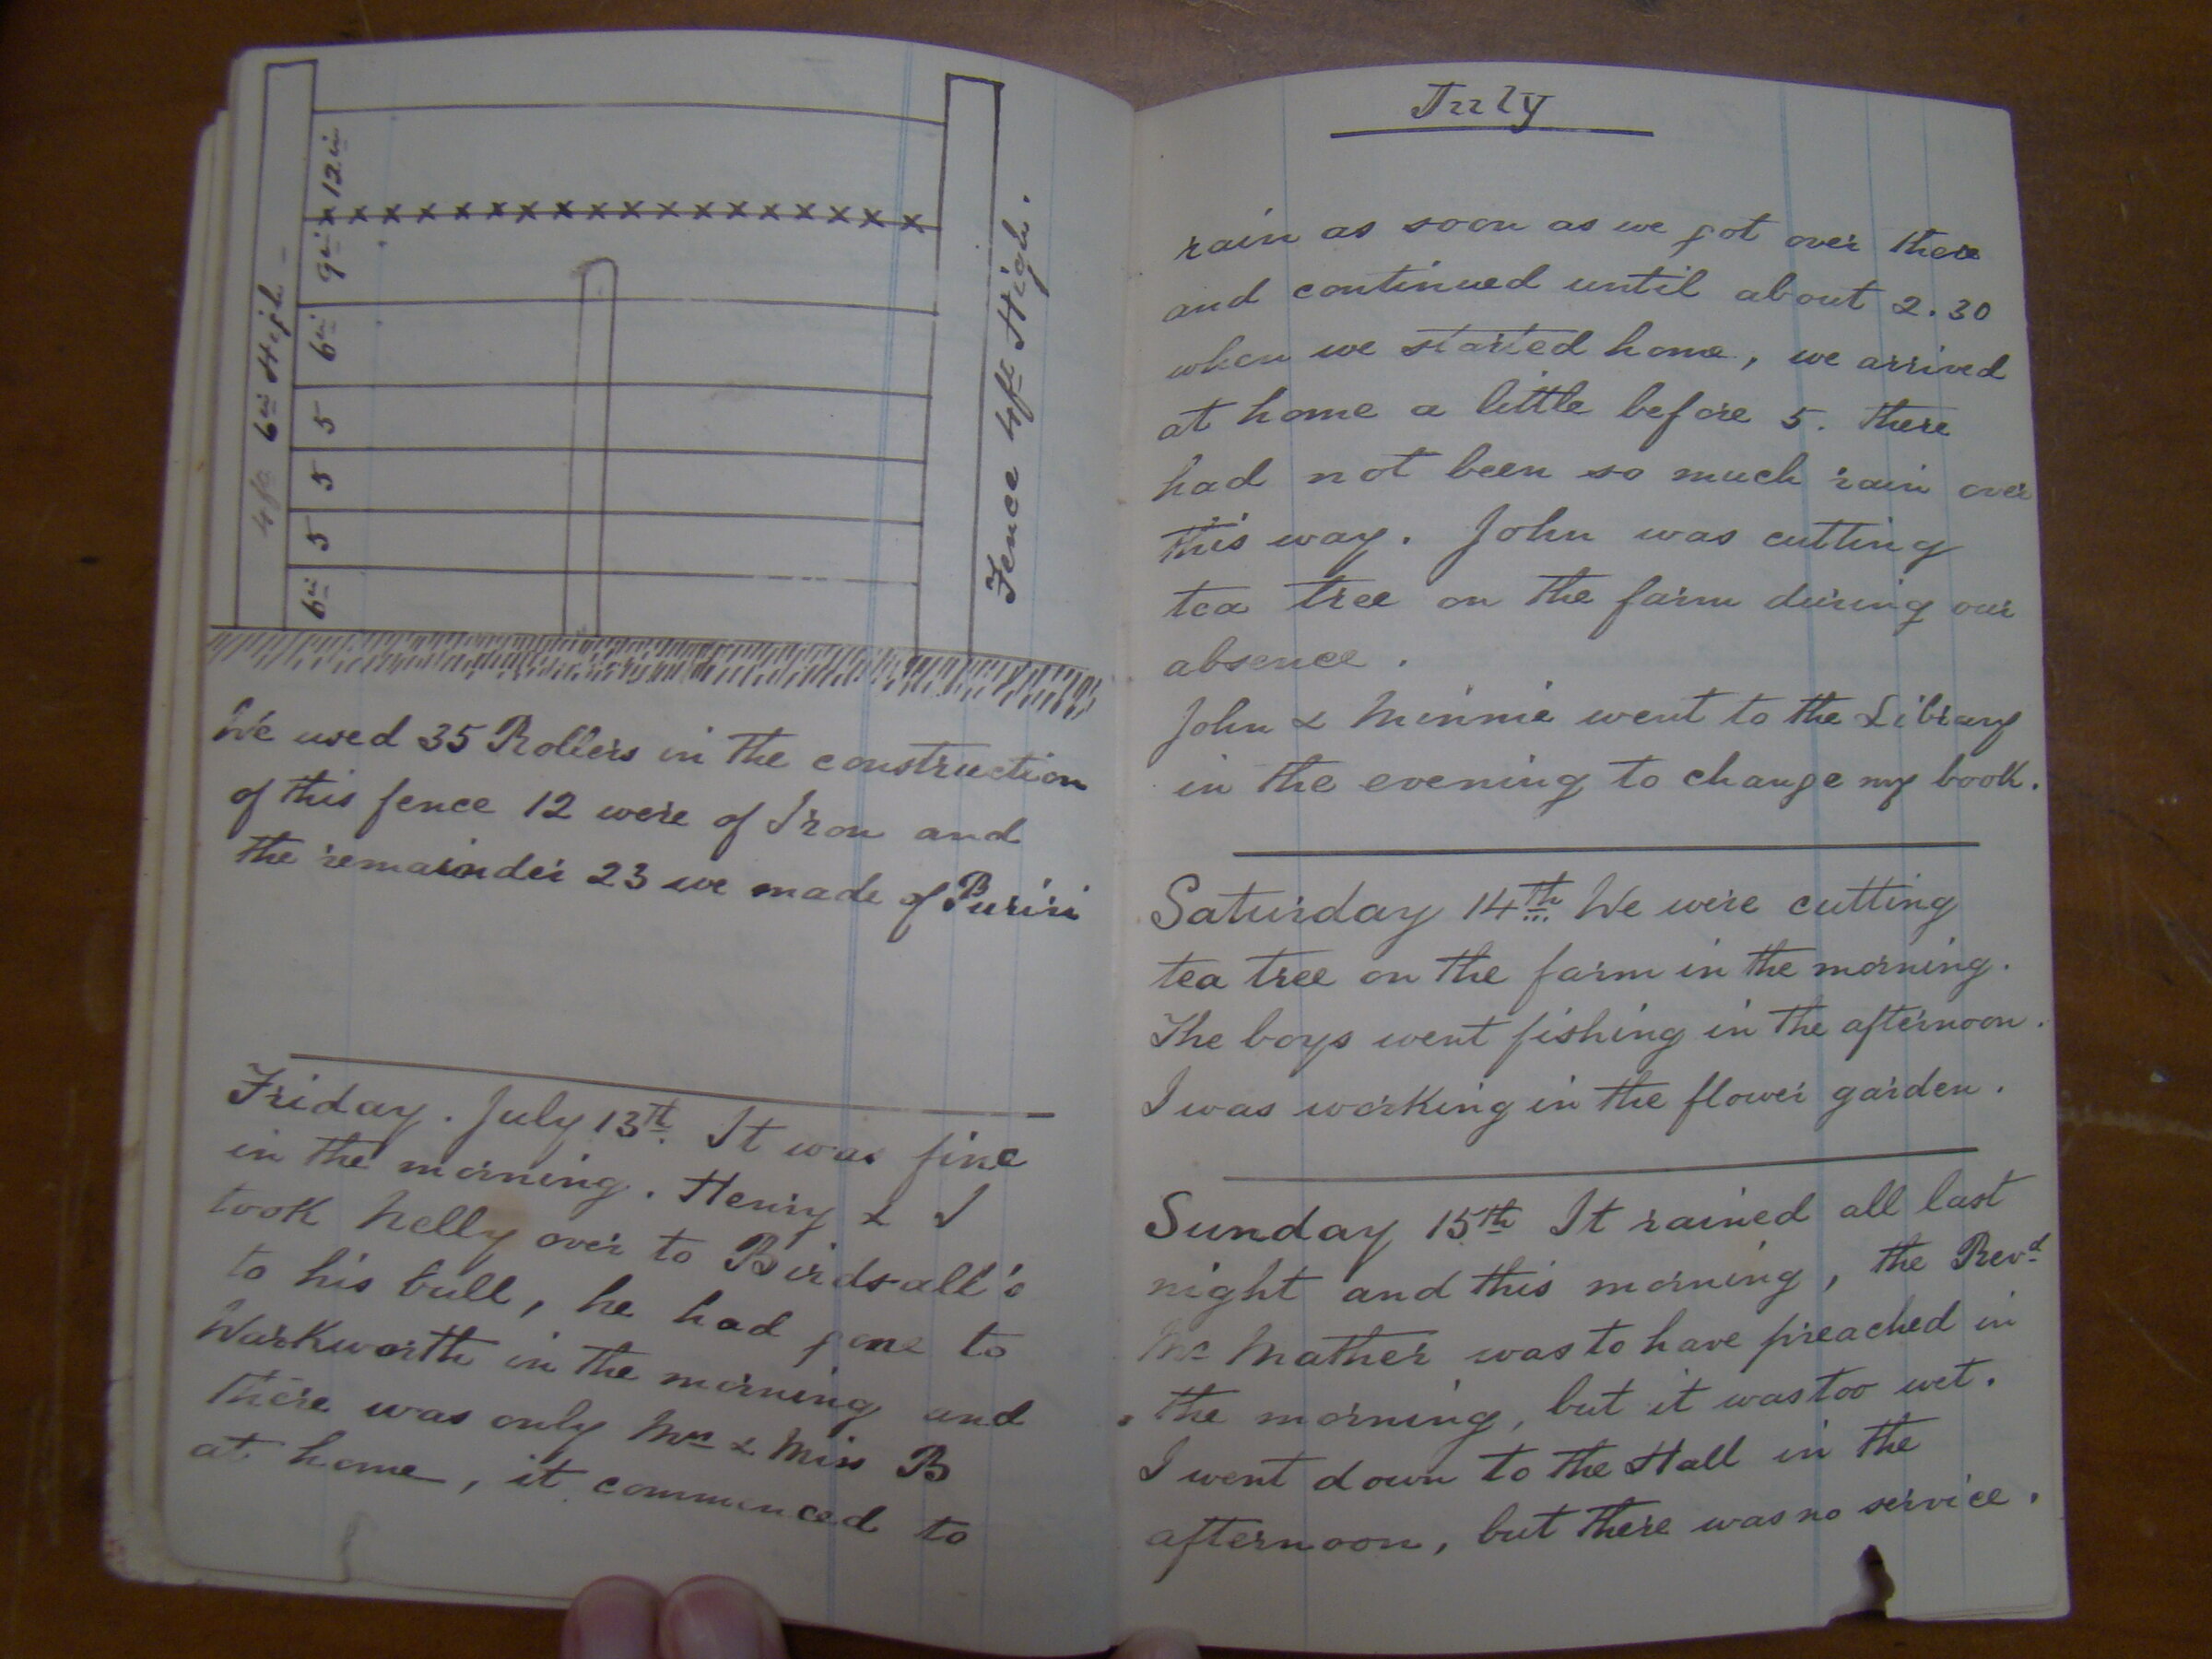 4ft 6in High
12 in
9in
6in
5
5
5
6in
Fence 4ft High.
We used 35 Rollers in the construction
of this fence 12 were of Iron and
the remainder 23 we made of Puriri
Friday. July 13th. It was fine
in the morning. Henry & I
took Nelly over to Birdsall's
to his bull, he had gone to
Warkworth in the morning and
there was only Mrs & Miss B
at home, it commenced to
July
rain as soon as we got over there
and continued until about 2.30
when we started home, we arrived
at home a little before 5. there
had not been so much rain over
this way. John was cutting
tea tree on the farm during our
absence.
John & Minnie went to the Library
in the evening to change my book.
Saturday 14th We were cutting
tea tree on the farm in the morning.
The boys went fishing in the afternoon.
I was working in the flower garden.
Sunday 15th It rained all last
night and this morning, the Revd
Mr Mather was to have preached in
the morning, but it was too wet.
I went down to the Hall in the
afternoon, but there was no service.